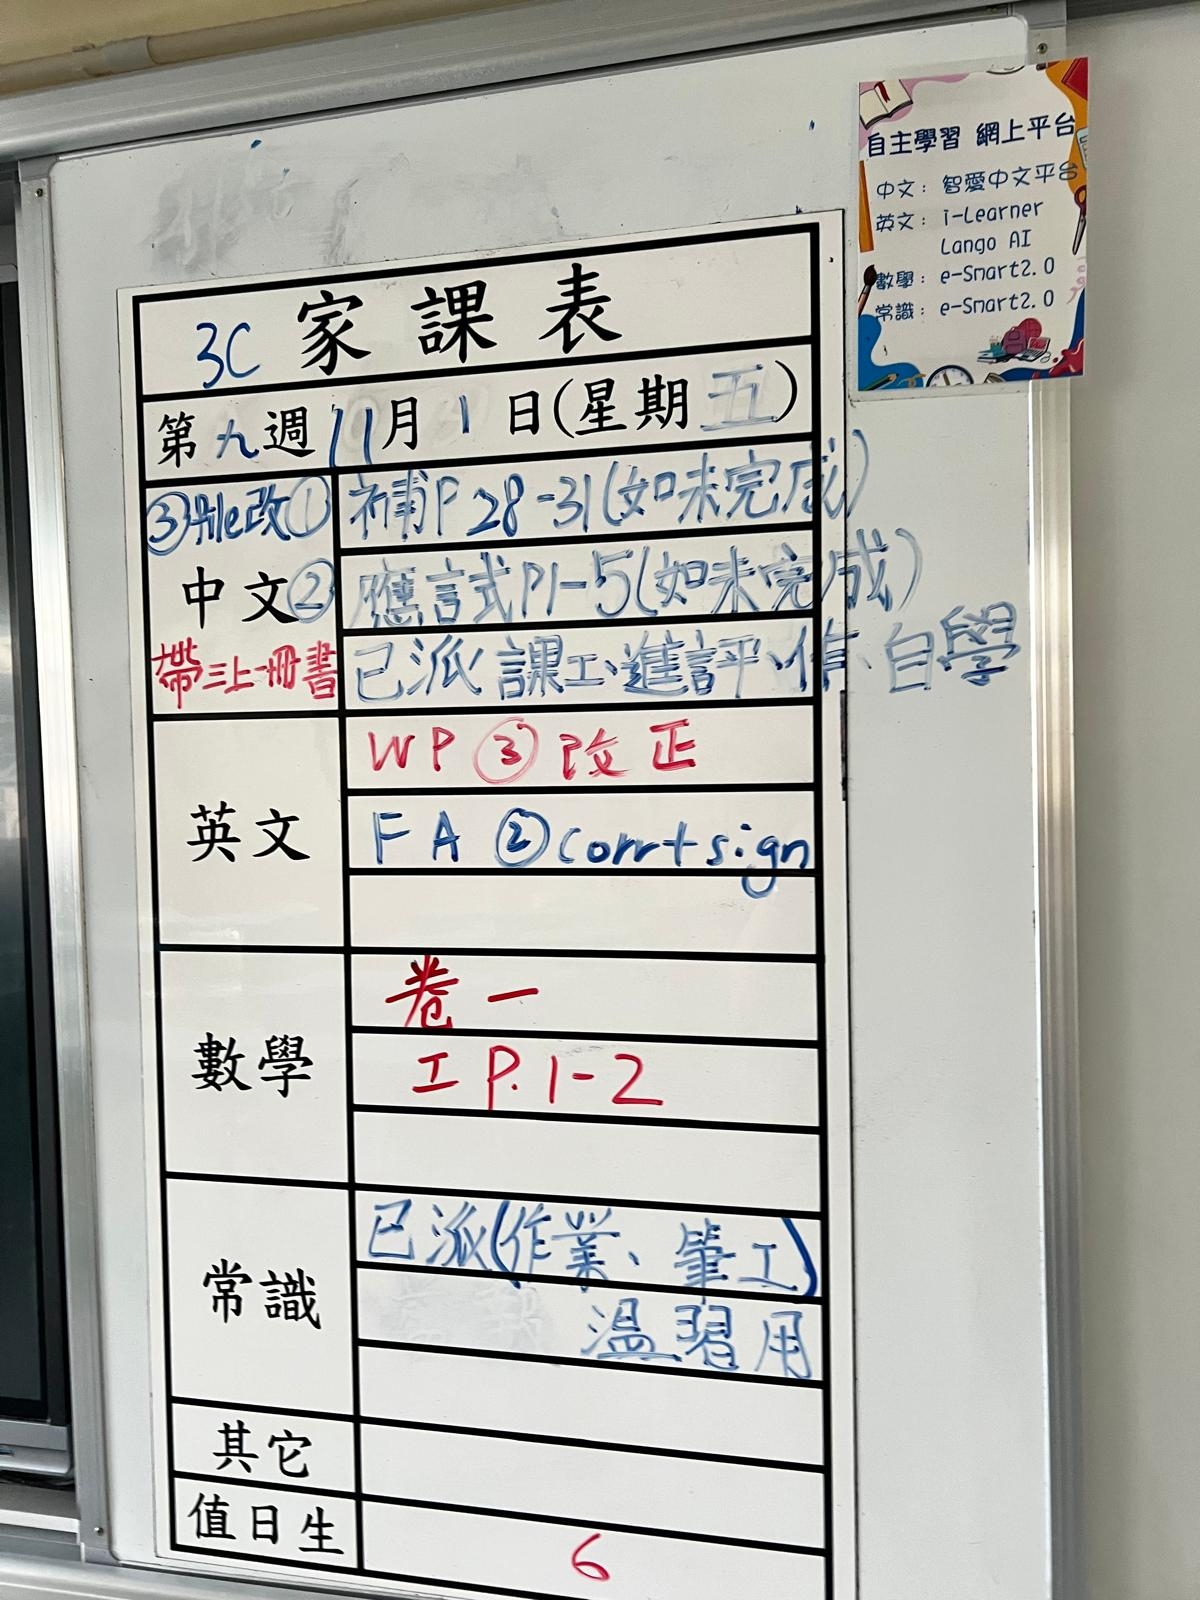 自主學習 網上平台
中文：智愛中文平台
英文：i-Learner
Lango AI
數學：e-Smart2.0
常識：e-Smart2.0
3C 家課表
第九週 11月1日(星期五)
③file改 ① 補P28-31(如未完成)
中文 ② 應試P1-5(如未完成)
帶三上一冊書 已派課工、進評、作、自學
英文
WP ③ 改正
FA ② corr+sign
數學
卷一
工 P.1-2
常識
已派(作業、筆工)
溫習用
其它
值日生 6